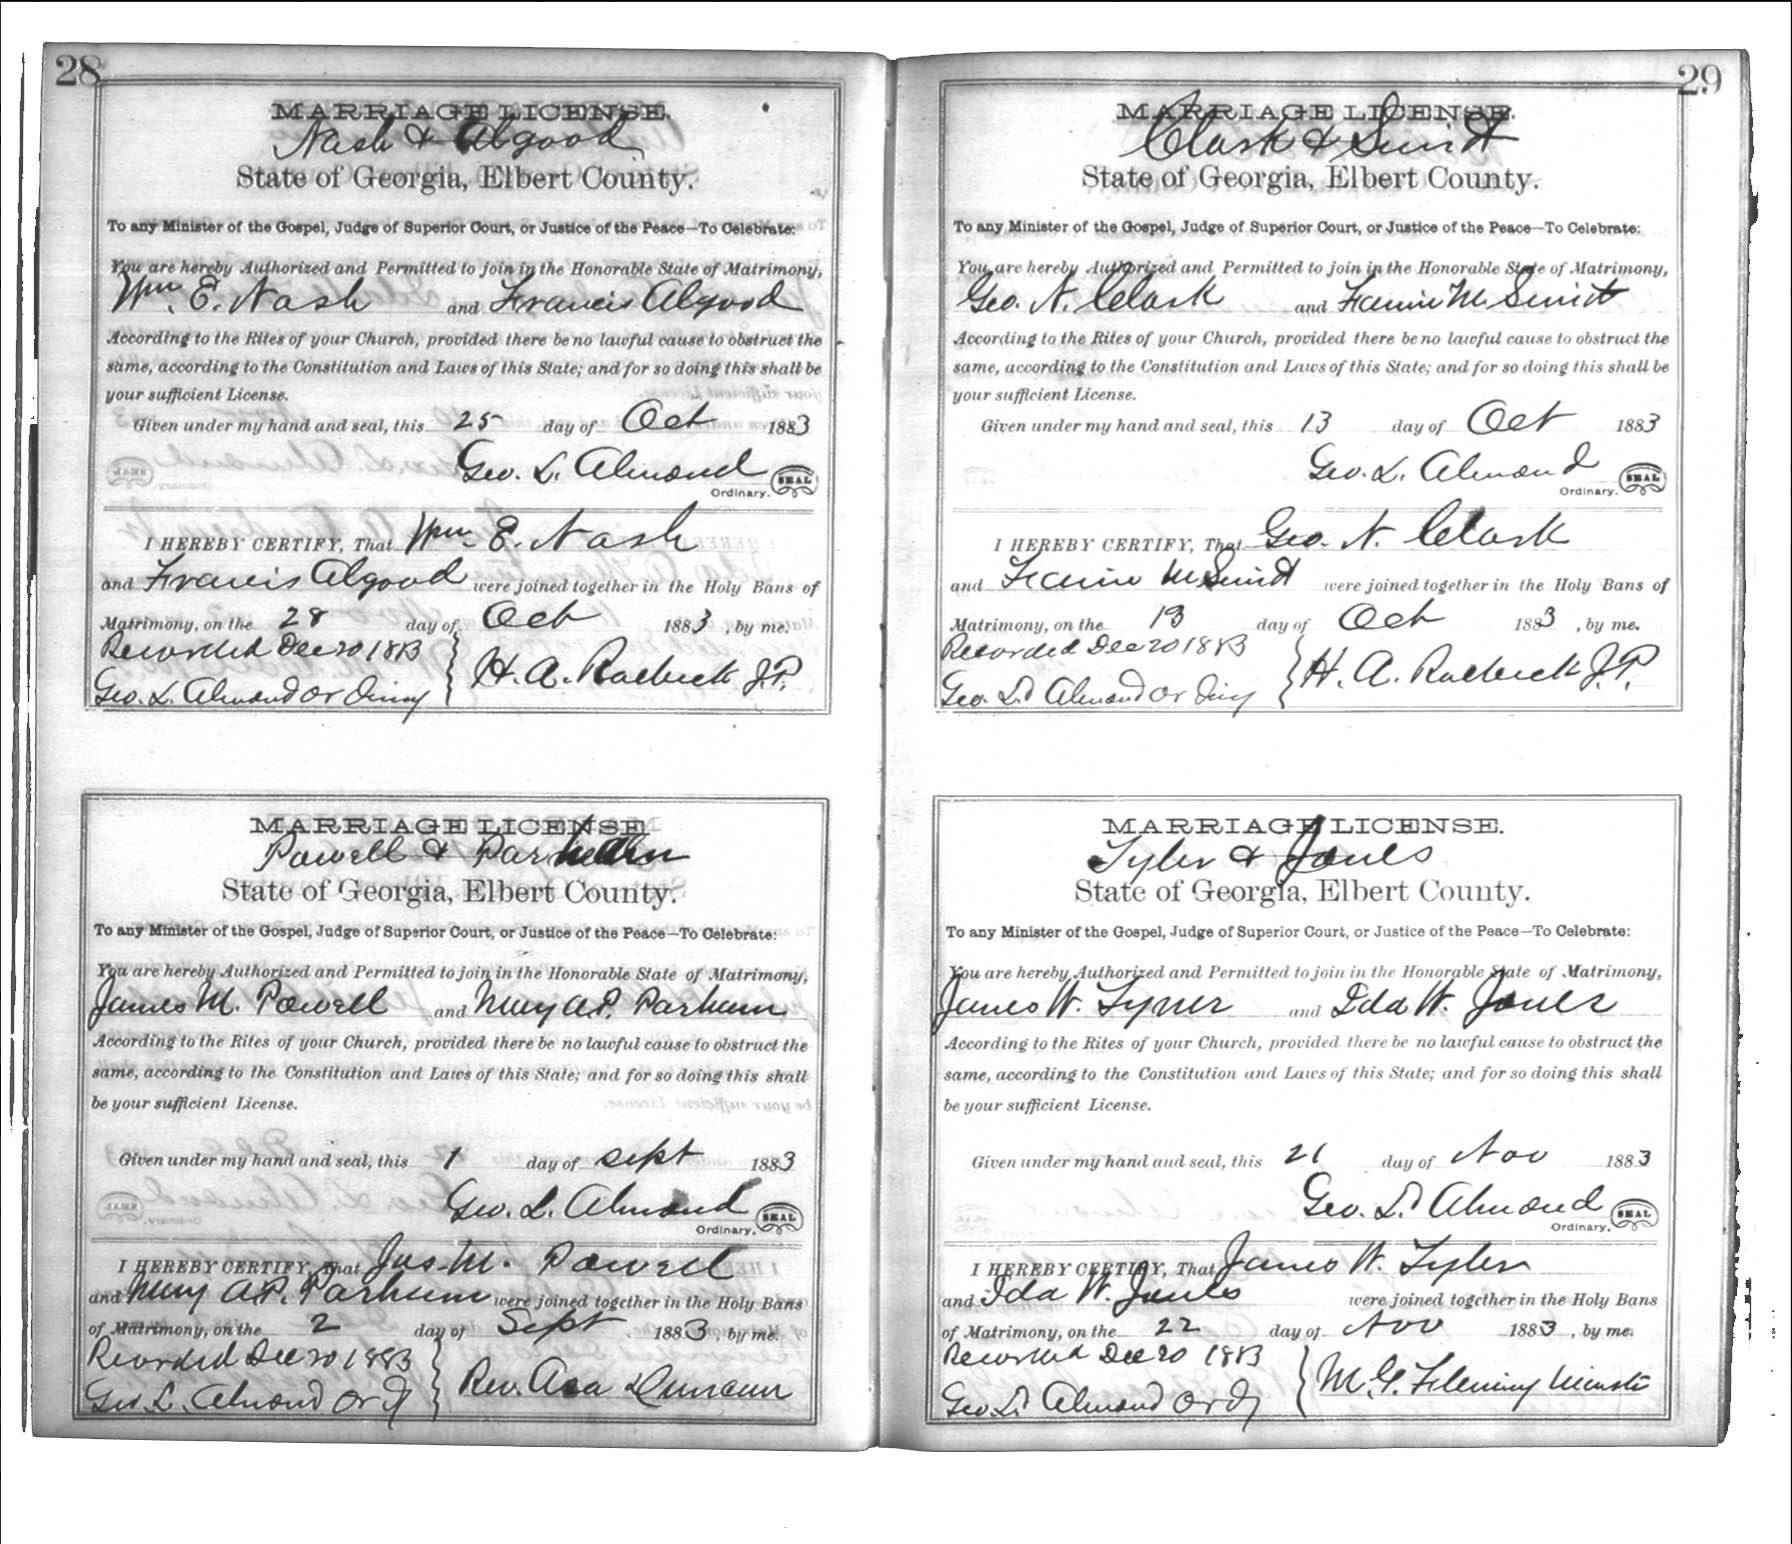 28
MARRIAGE LICENSE.
Nash & Algood
State of Georgia, Elbert County.
To any Minister of the Gospel, Judge of Superior Court, or Justice of the Peace—To Celebrate:
You are hereby Authorized and Permitted to join in the Honorable State of Matrimony,
Wm. E. Nash and Francis Algood
According to the Rites of your Church, provided there be no lawful cause to obstruct the
same, according to the Constitution and Laws of this State; and for so doing this shall be
your sufficient License.
Given under my hand and seal, this 25 day of Oct 1883
Geo. L. Almond SEAL
Ordinary.
I HEREBY CERTIFY, That Wm. E. Nash
and Francis Algood were joined together in the Holy Bans of
Matrimony, on the 28 day of Oct 1883, by me.
Recorded Dec 20 1883
Geo. L. Almond Ordiny H. A. Roebuck J.P.
MARRIAGE LICENSE
Powell & Parham
State of Georgia, Elbert County.
To any Minister of the Gospel, Judge of Superior Court, or Justice of the Peace—To Celebrate:
You are hereby Authorized and Permitted to join in the Honorable State of Matrimony,
James M. Powell and Mary A.P. Parham
According to the Rites of your Church, provided there be no lawful cause to obstruct the
same, according to the Constitution and Laws of this State; and for so doing this shall
be your sufficient License.
Given under my hand and seal, this 1 day of Sept 1883
Geo. L. Almond SEAL
Ordinary.
I HEREBY CERTIFY, That Jas. M. Powell
and Mary A.P. Parham were joined together in the Holy Bans
of Matrimony, on the 2 day of Sept 1883, by me.
Recorded Dec 20 1883
Geo. L. Almond Ordy Rev. Asa Duncan
29
MARRIAGE LICENSE.
Clark & Smith
State of Georgia, Elbert County.
To any Minister of the Gospel, Judge of Superior Court, or Justice of the Peace—To Celebrate:
You are hereby Authorized and Permitted to join in the Honorable State of Matrimony,
Geo. N. Clark and Fannie M Smith
According to the Rites of your Church, provided there be no lawful cause to obstruct the
same, according to the Constitution and Laws of this State; and for so doing this shall be
your sufficient License.
Given under my hand and seal, this 13 day of Oct 1883
Geo. L. Almond SEAL
Ordinary.
I HEREBY CERTIFY, That Geo. N. Clark
and Fannie M Smith were joined together in the Holy Bans of
Matrimony, on the 13 day of Oct 1883, by me.
Recorded Dec 20 1883
Geo. L. Almond Ordiny H. A. Roebuck J.P.
MARRIAGE LICENSE.
Tyler & Jones
State of Georgia, Elbert County.
To any Minister of the Gospel, Judge of Superior Court, or Justice of the Peace—To Celebrate:
You are hereby Authorized and Permitted to join in the Honorable State of Matrimony,
James W. Tyner and Ida W. Jones
According to the Rites of your Church, provided there be no lawful cause to obstruct the
same, according to the Constitution and Laws of this State; and for so doing this shall
be your sufficient License.
Given under my hand and seal, this 21 day of Nov 1883
Geo. L. Almond SEAL
Ordinary.
I HEREBY CERTIFY, That James W. Tyler
and Ida W. Jones were joined together in the Holy Bans
of Matrimony, on the 22 day of Nov 1883, by me.
Recorded Dec 20 1883
Geo. L. Almond Ordy M. G. Fleming Minster